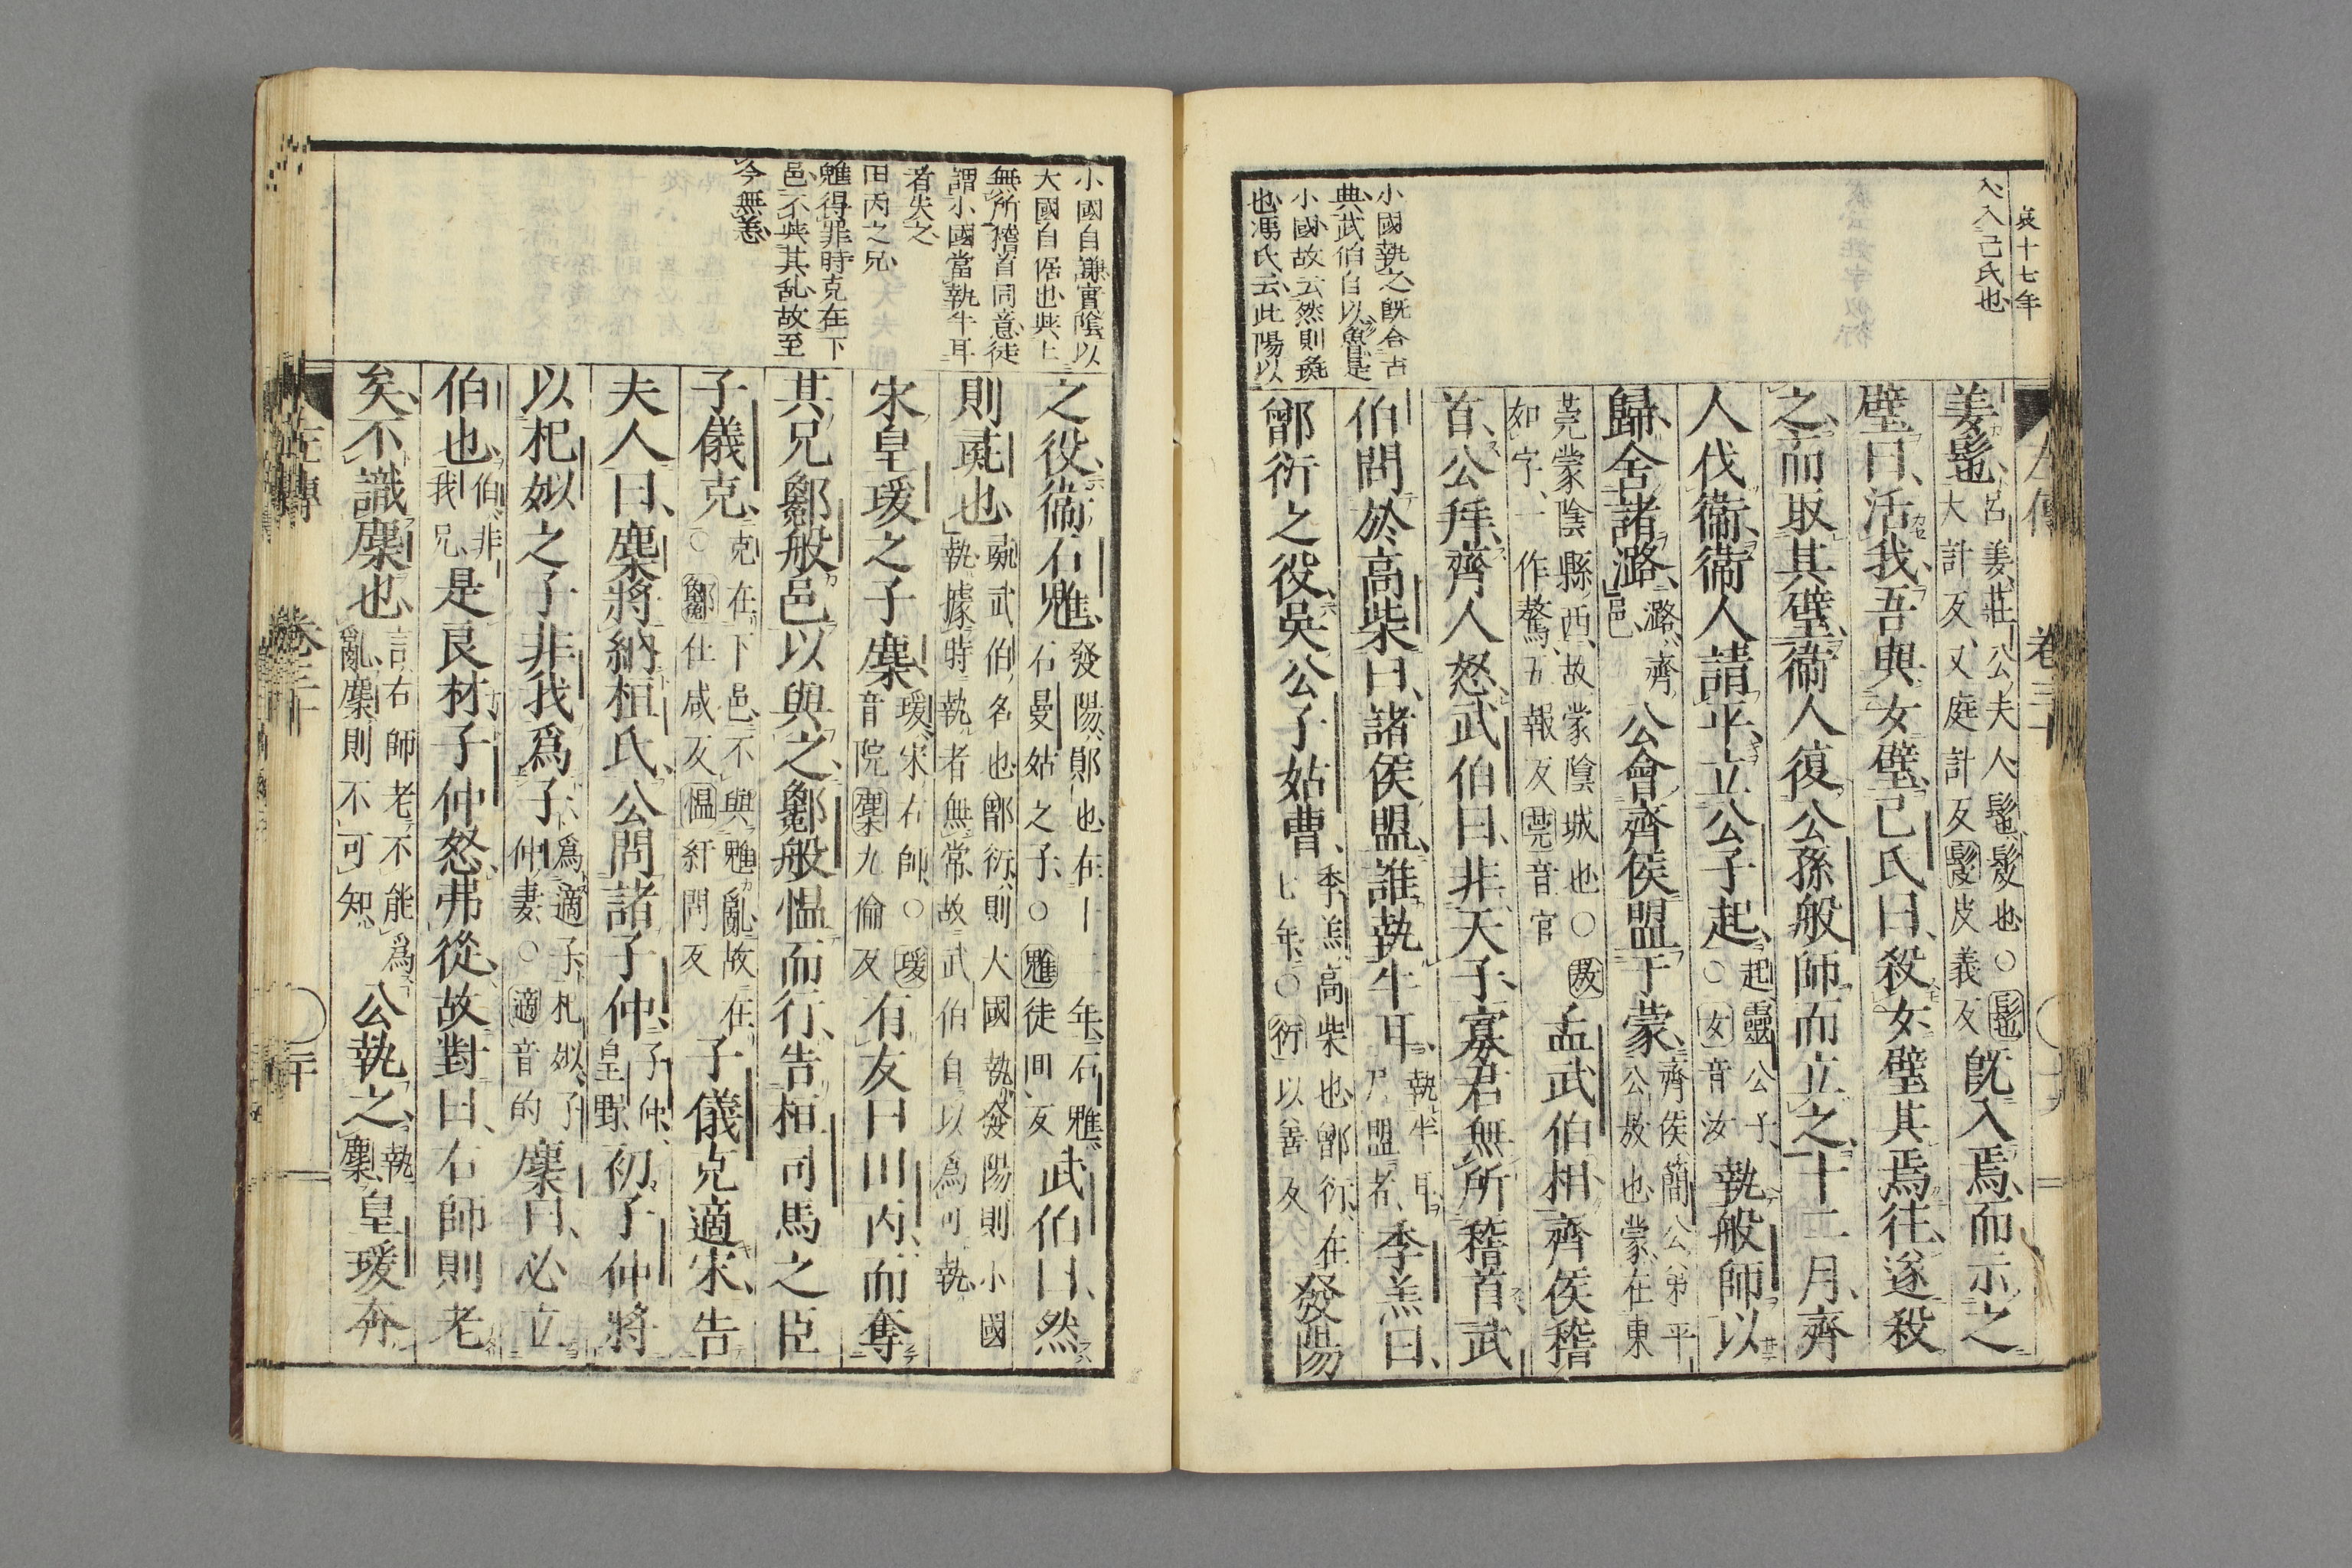 哀十七年
入、入己氏也
小國執之既合古
典武伯自以魯是
小國故云然則彘
也馮氏云此陽以
左傳 卷三十
姜髢、呂姜、莊公夫人、髢、髲也、○髢大計反、又庭計反髲皮義反既入焉、而示之
璧曰、活我、吾與女璧、己氏曰、殺女璧其焉往、遂殺
之、而取其璧、衞人復公孫般師而立之、十二月、齊
人伐衞、衞人請平、立公子起、起、靈公子、○女音汝執般師以
歸、舍諸潞、潞、齊邑、公會齊侯盟于蒙、齊侯、簡公弟平公敖也、蒙、在東
莞蒙陰縣西、故蒙陰城也、○敖如字、一作驁、五報反莞音官孟武伯相、齊侯稽
首、公拜、齊人怒、武伯曰、非天子、寡君無所稽首、武
伯問於高柴曰、諸侯盟、誰執牛耳、執牛耳、尸盟者、季羔曰、
鄫衍之役、吳公子姑曹、季羔、高柴也、鄫衍、在七年、○衍以善反發陽
小國自謙實陰以
大國自倨也與上
無所稽首同意徒
謂小國當執牛耳
者失之
田丙之兄
魋得罪時克在下
邑不與其乱故至
今無恙
之役、衞石魋、發陽、鄖也、在十二年、石魋、石曼姑之子、○魋徒回反武伯曰、然
則彘也、彘、武伯名也、鄫衍、則大國執、發陽則小國執、據時執者無常、故武伯自以爲可執、
宋皇瑗之子麇、瑗、宋右師、○瑗音院麇九倫反有友曰田丙、而奪
其兄鄭般邑以與之、鄭般慍而行、告桓司馬之臣
子儀克、克在下邑、不與魋亂、故在、○鄭仕咸反慍紆問反子儀克適宋、告
夫人曰、麇將納桓氏、公問諸子仲、子仲、皇野、初子仲將
以杞姒之子非我爲子、爲適子、杞姒、子仲妻、○適音的麇曰、必立
伯也、伯、非我兄、是良材、子仲怒、弗從、故對曰、右師則老
矣、不識麇也、言右師老、不能爲亂、麇則不可知、公執之、執麇、皇瑗奔
左傳 卷三十